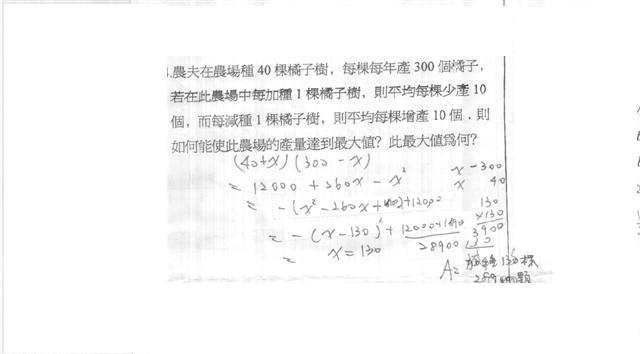 .農夫在農場種 40 棵橘子樹，每棵每年產 300 個橘子，
若在此農場中每加種 1 棵橘子樹，則平均每棵少產 10
個，而每減種 1 棵橘子樹，則平均每棵增產 10 個．則
如何能使此農場的產量達到最大值？此最大值為何？
(40+x)(300-x)
= 12000 + 260x - x²
x -300
x 40
= -(x² - 260x + )+12000
= -(x-130)² + 12000+16900
130
x130
3900
= x=130
28900
A= 加種 130棵